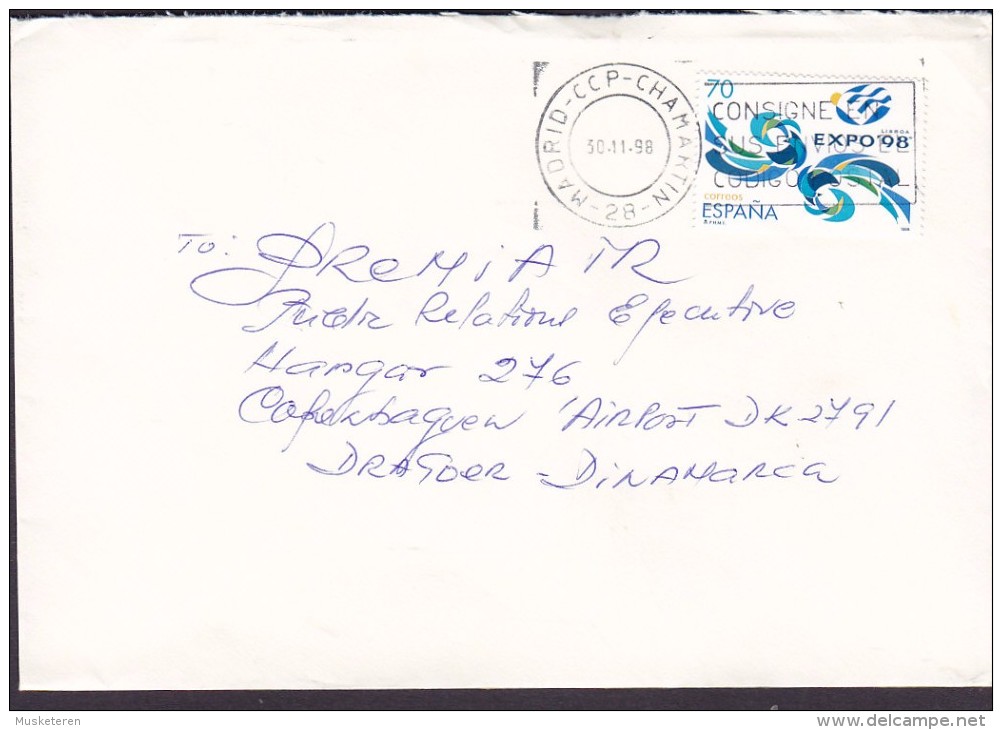 MADRID-CCP-CHAMARTIN
-28-
30-11-98
70
CONSIGNE EN
SUS ENVIOS EL
CODIGO POSTAL
LISBOA
EXPO'98
correos
ESPAÑA
1998
To:
PREMIAIR
Public Relations Executive
Hangar 276
Copenhaguen AIRPORT DK 2791
DRAGOER - DINAMARCA
Musketeren
delcampe.net